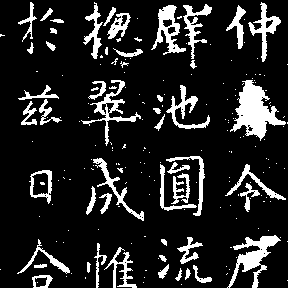 仲春令序
璧池圓流
揔翠成帷
於茲日合